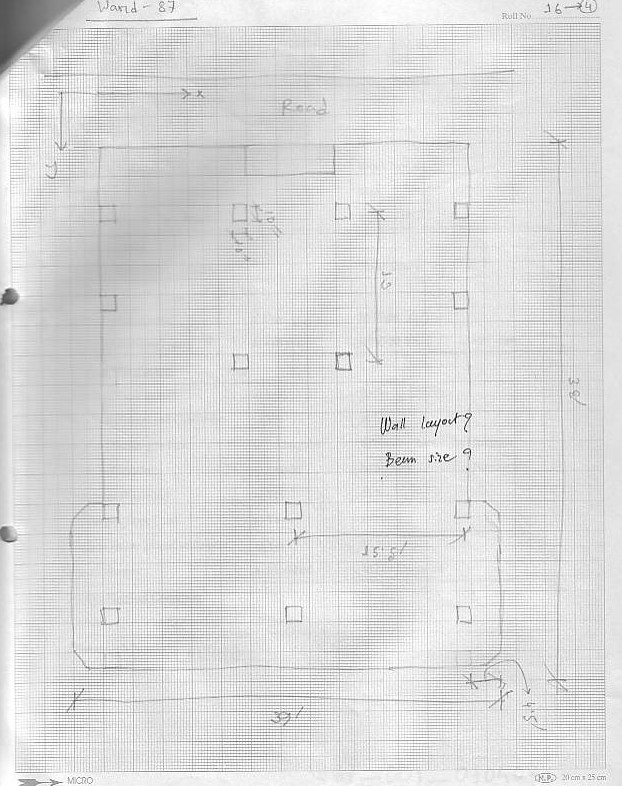 Ward - 87
Roll No 16 → 4
x
Road
y
10"
10"
13
38'
Wall layout?
Beam size?
15.5'
4.5'
39'
MICRO
N.P. 20 cm x 25 cm